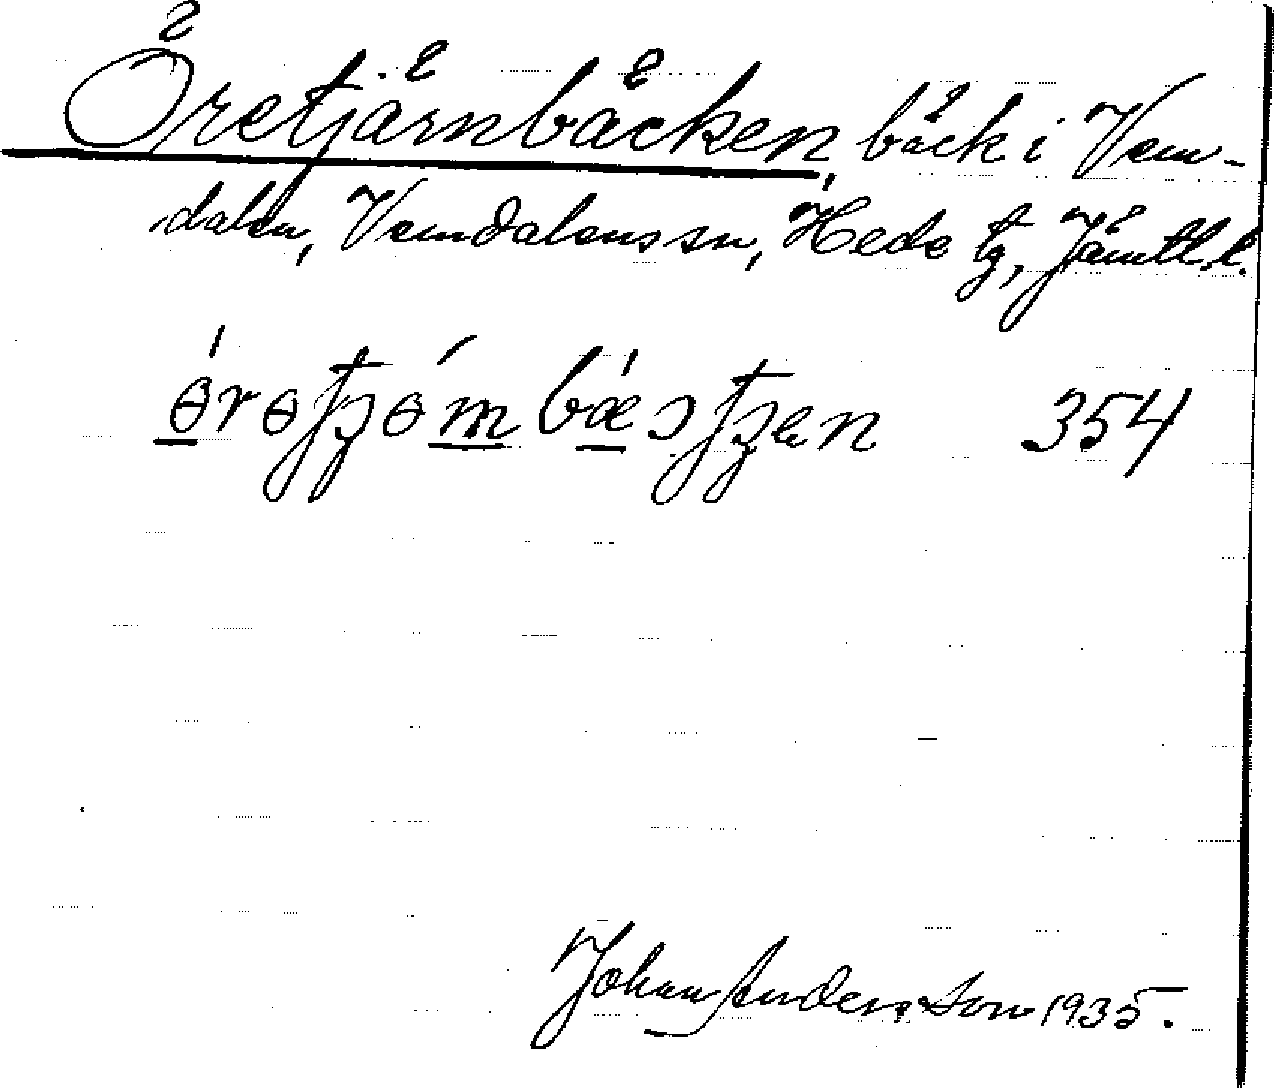 Öretjärnbäcken, bäck i Vem-
dalen, Vemdalens sn, Hede tg, Jämtl. l.
354
Johan Andersson 1935.